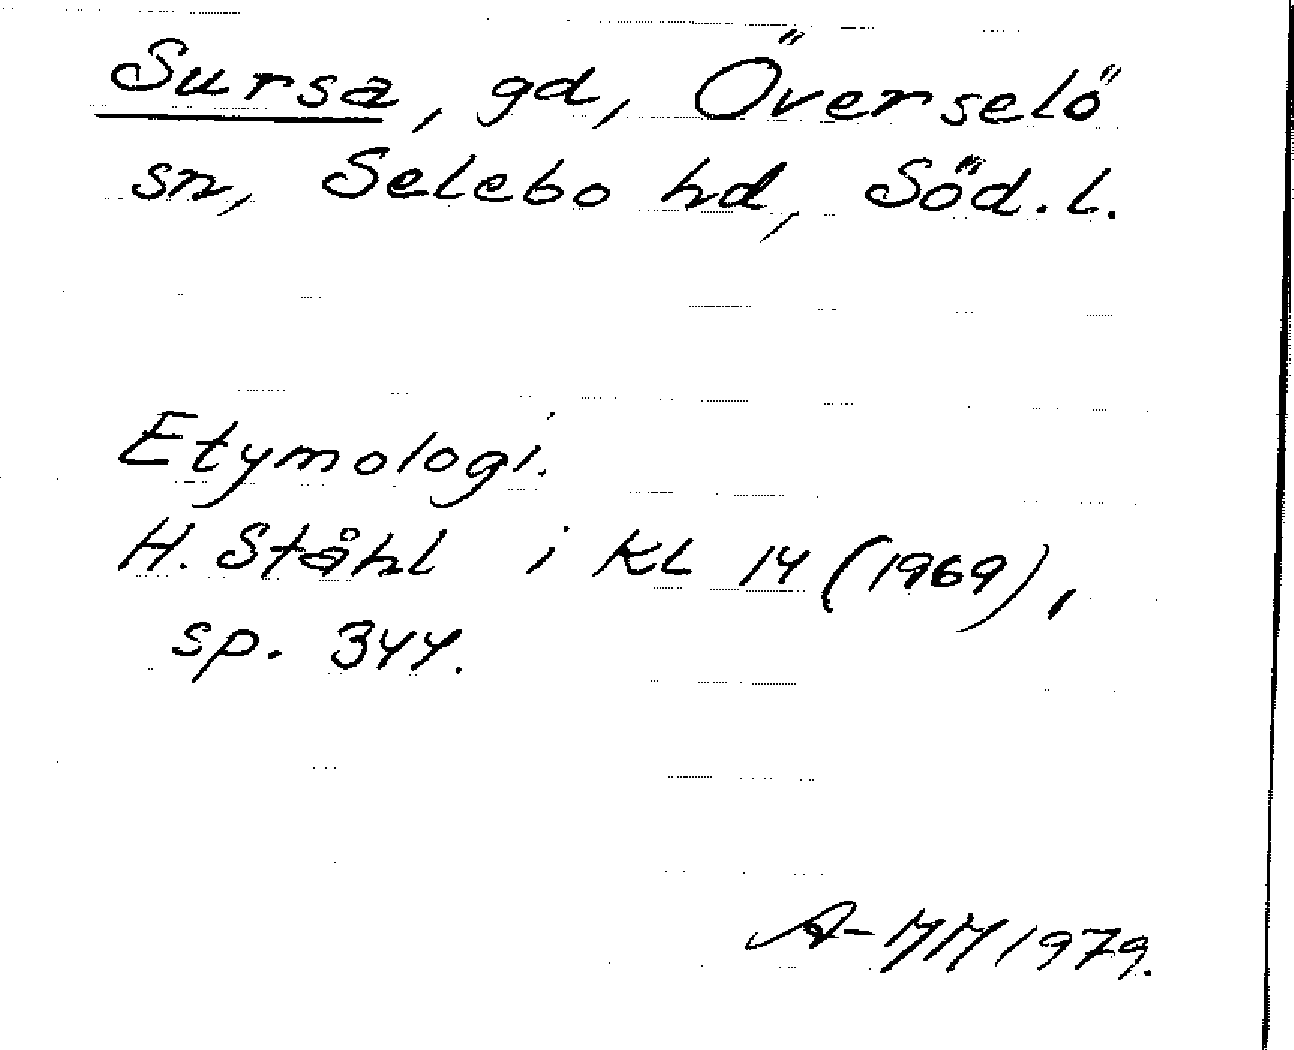 Sursa, gd, Överselö
sn, Selebo hd, Söd. l.
Etymologi.
H. Ståhl i KL 14 (1969),
sp. 344.
A-MM 1979.